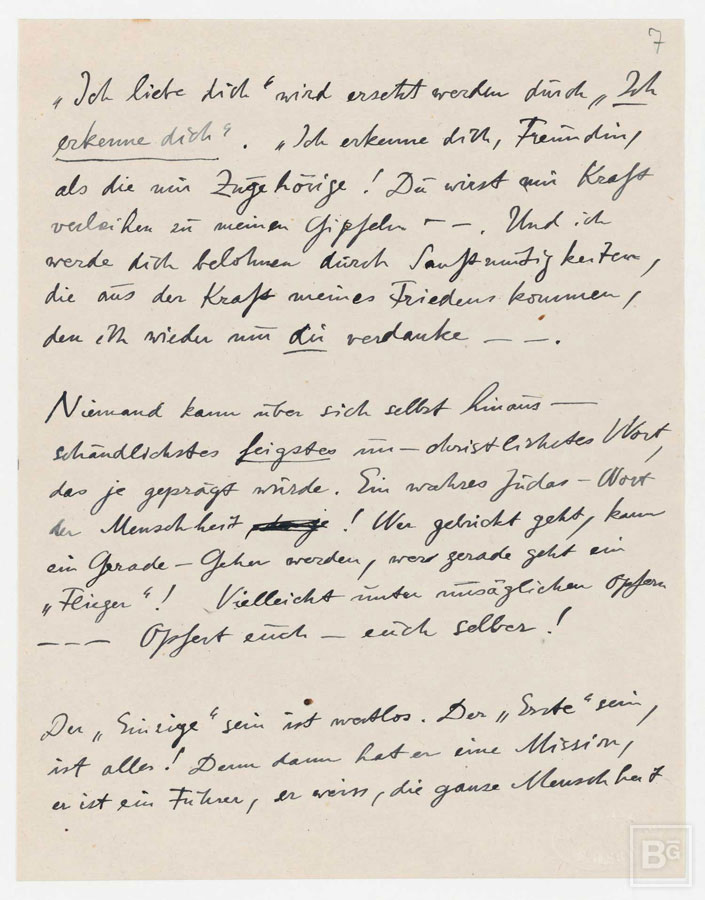 7
„Ich liebe dich“ wird ersetzt werden durch „Ich
erkenne dich“. „Ich erkenne dich, Freundin,
als die mir Zugehörige! Du wirst mir Kraft
verleihen zu meinen Gipfeln – –. Und ich
werde dich belohnen durch Sanftmütigkeiten,
die aus der Kraft meines Friedens kommen,
den ich wieder nur dir verdanke – –.
Niemand kann über sich selbst hinaus –
schändlichstes feigstes un–christlichstes Wort,
das je geprägt wurde. Ein wahres Judas–Wort
der Menschheit! Wer gebückt geht, kann
ein Gerade–Geher werden, wer gerade geht ein
„Flieger“! Vielleicht unter unsäglichen Opfern
– – – Opfert euch – euch selber!
Der „Einzige“ sein ist wertlos. Der „Erste“ sein,
ist alles! Denn dann hat er eine Mission,
er ist ein Führer, er weiss, die ganze Menschheit
BG